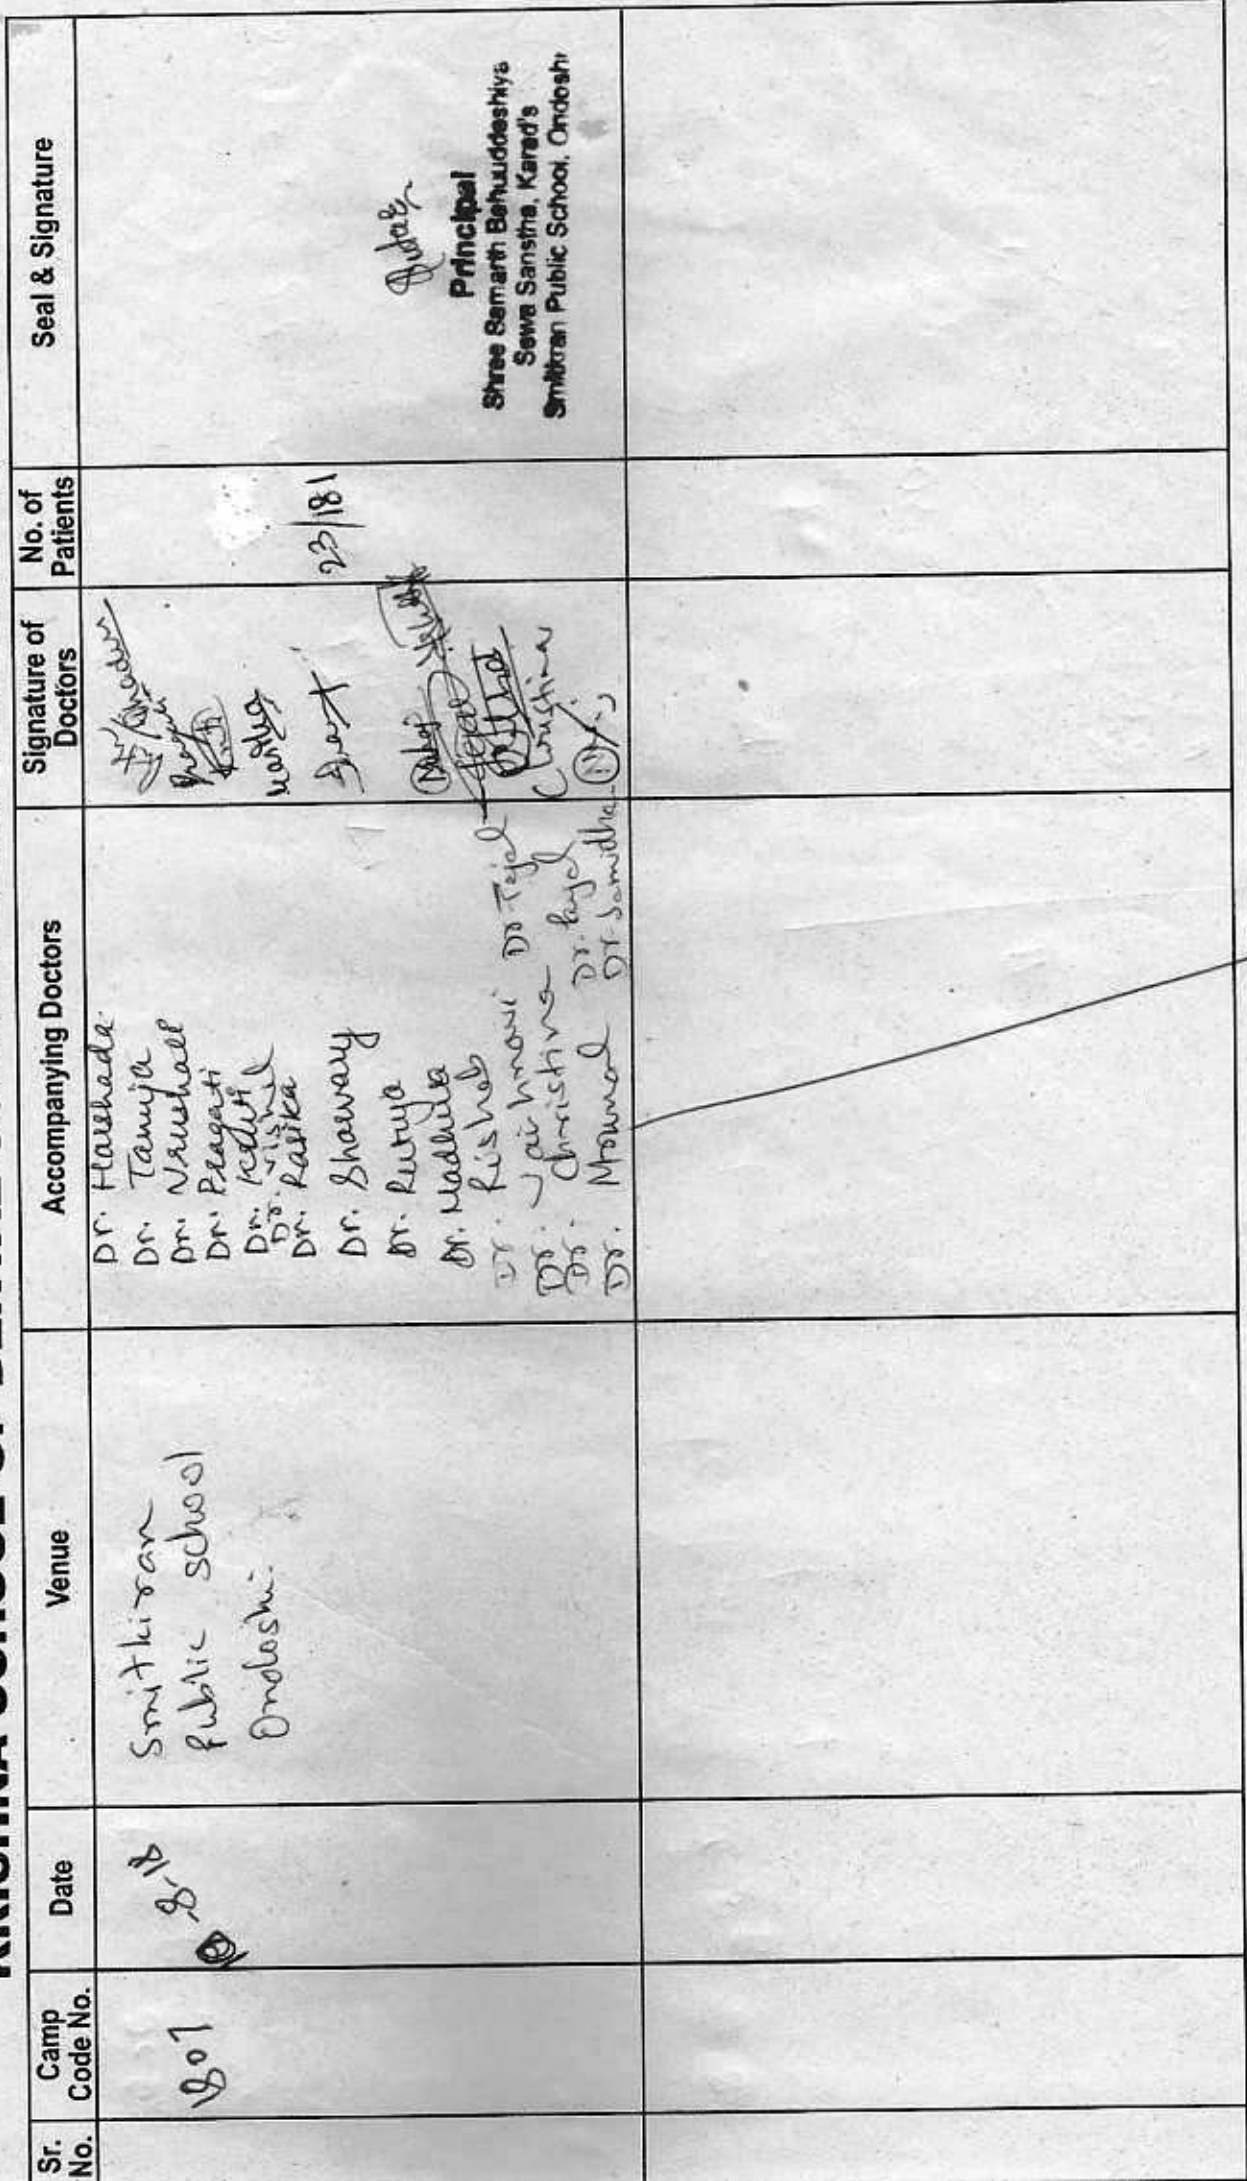 Sr. No.
Camp Code No.
Date
Venue
Accompanying Doctors
Signature of Doctors
No. of Patients
Seal & Signature
1807
-8-18
Smitkiran
Public school
Ondoshi.
Dr. Harshada
Dr. Tanuja
Dr. Vrushali
Dr. Pragati
Dr. Kruti
Dr. Vishil
Dr. Rasika
Dr. Sharvary
Dr. Rutuja
Dr. Madhura
Dr. Rishab
Dr. Jaihmavi Dr. Tejal
Dr. Christina
Dr. Payal
Dr. Mrunal Dr. Samidha
Pragati
Tejal
Christina
23/181
Principal
Shree Samarth Bahuuddeshiya
Sewa Sanstha, Karad's
Smitkiran Public School, Ondoshi